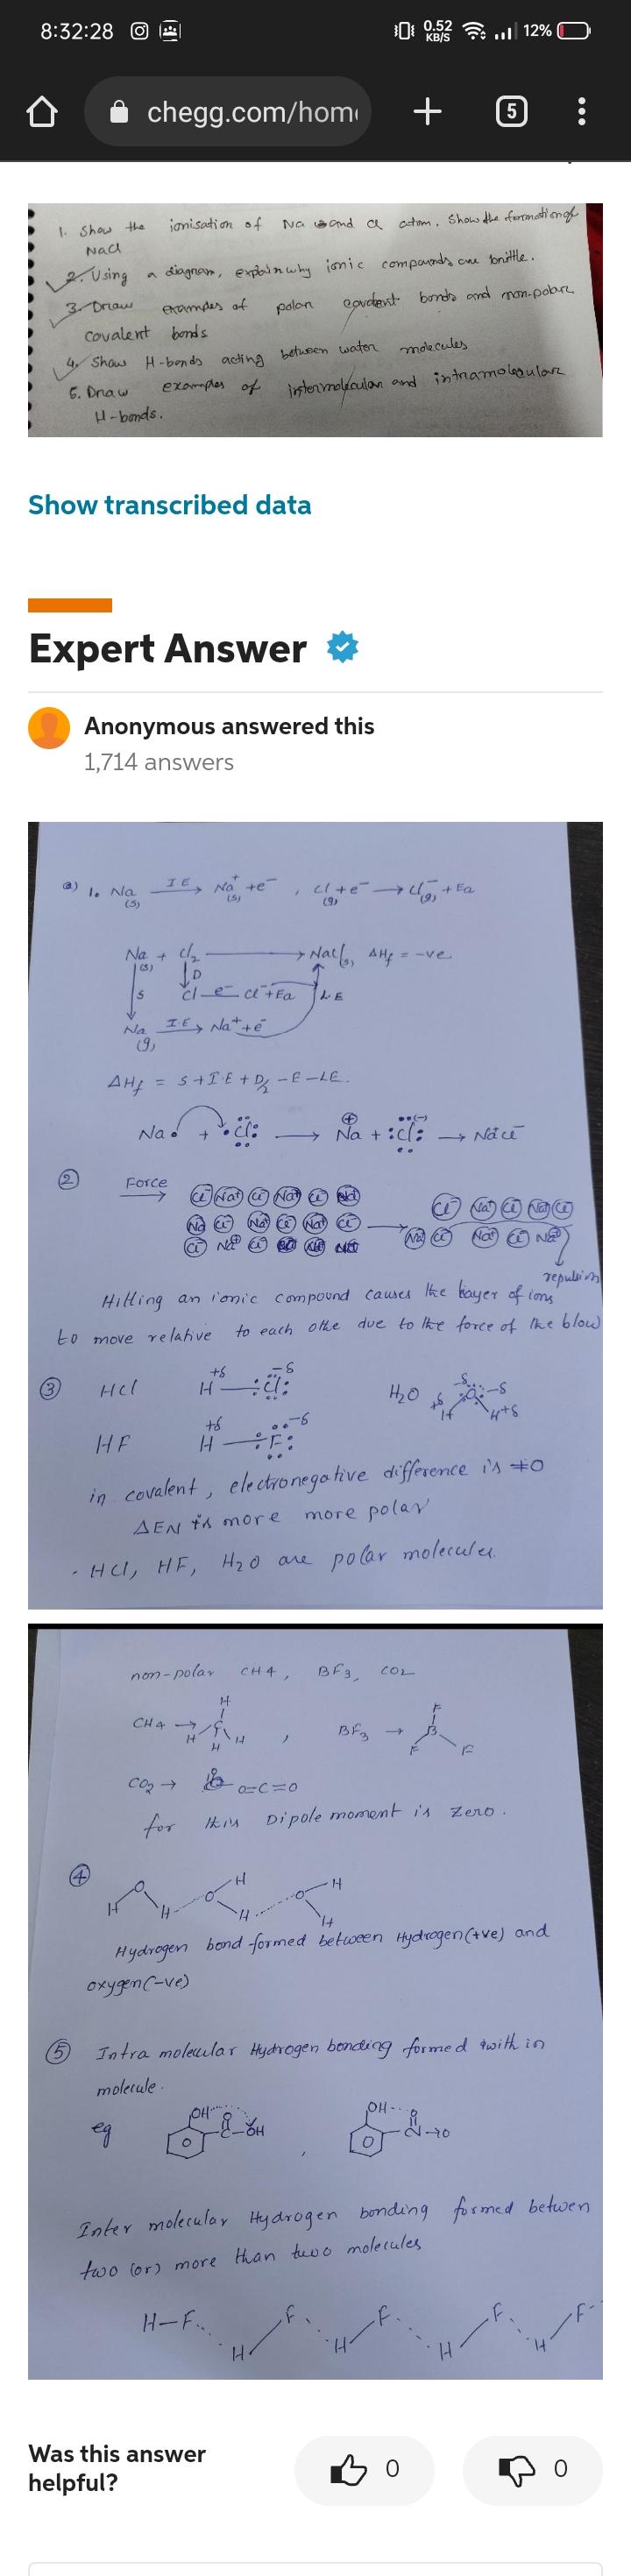 8:32:28
0.52
KB/S
12%
chegg.com/hom
5
1. Show the ionisation of Na and Cl atom. Show the formation of
NaCl
2. Using a diagram, explain why ionic compounds are brittle.
3. Draw examples of polar covalent bonds and non-polar
covalent bonds
4. Show H-bonds acting between water molecules
5. Draw examples of intermolecular and intramolecular
H-bonds.
Show transcribed data
Expert Answer
Anonymous answered this
1,714 answers
1. Na (s) I.E → Na⁺ (s) + e⁻ , Cl (g) + e⁻ → Cl⁻ (g) + Ea
Na (s) + Cl₂ → NaCl (s) ΔHf = -ve
S
D
Cl e⁻ Cl⁻ + Ea
LE
Na (g) I.E → Na⁺ + e⁻
ΔHf = S + I.E + D/2 - E - LE.
Na + Cl → Na + Cl → NaCl
②
Force
Cl⁻ Na⁺ Cl⁻ Na⁺ Cl⁻
Na Cl⁻ Na⁺ Cl⁻ Na⁺ Cl⁻
Cl⁻ Na⁺ Cl⁻
Cl⁻ Na⁺ Cl⁻ Na⁺ Cl⁻
Na⁺ Cl⁻ Na⁺ Cl⁻ Na⁺
repulsion
Hitting an ionic compound causes the layer of ions
to move relative to each othe due to the force of the blow
③ HCl +δ H — Cl -δ H₂O -δ -δ +δ H H +δ
HF +δ H — F -δ
in covalent, electronegative difference is ≠0
ΔEN is more more polar
- HCl, HF, H₂O are polar molecules.
non-polar CH4, BF3, CO2
CH4 → H C H H H , BF3 → F B F F
CO2 → O=C=O
for this Dipole moment is zero.
④
H O H O H H O H H
Hydrogen bond formed between Hydrogen (+ve) and
oxygen (-ve)
⑤ Intra molecular Hydrogen bonding formed with in
molecule.
eg OH O C-OH , OH O N→O
Inter molecular Hydrogen bonding formed betwen
two (or) more than two molecules
H-F H F H F H F H F
Was this answer
helpful?
0
0